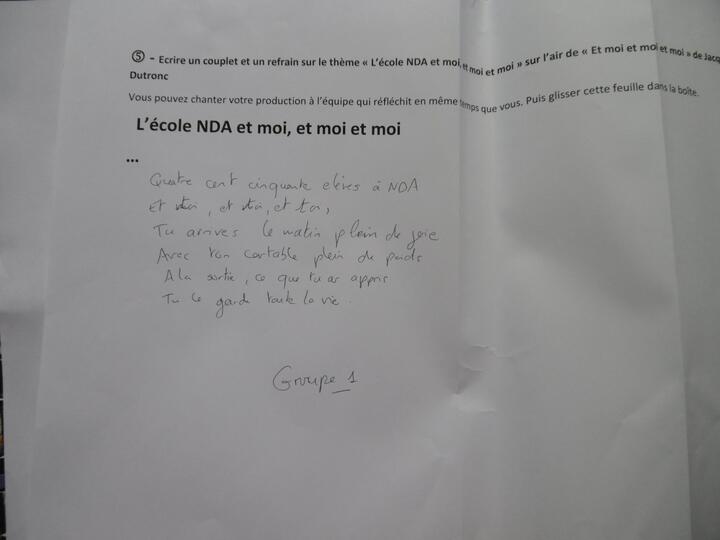 ⑤ - Ecrire un couplet et un refrain sur le thème « L'école NDA et moi, et moi et moi » sur l'air de « Et moi et moi et moi » de Jacq
Dutronc
Vous pouvez chanter votre production à l'équipe qui réfléchit en même temps que vous. Puis glisser cette feuille dans la boîte.
L'école NDA et moi, et moi et moi
...
Quatre cent cinquante elèves à NDA
Et toi, et toi, et toi,
Tu arrives le matin plein de joie
Avec ton cartable plein de poids
A la sortie, ce que tu as appris
Tu le garde toute la vie.
Groupe_1